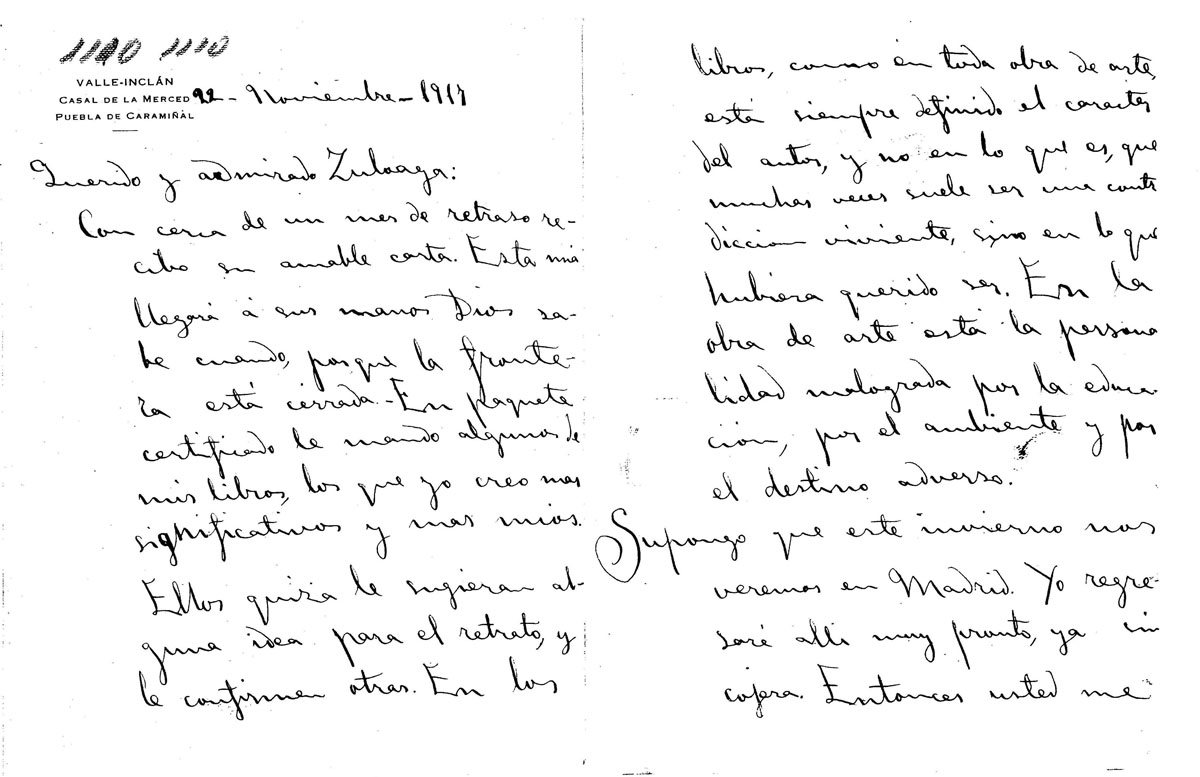 1110 1110
VALLE-INCLÁN
CASAL DE LA MERCED
PUEBLA DE CARAMIÑAL
22 - Noviembre - 1917
Querido y admirado Zuloaga:
Con cerca de un mes de retraso re-
cibo su amable carta. Esta mia
llegará á sus manos Dios sa-
be cuando, porque la fronte-
ra está cerrada - En paquete
certificado le mando algunos de
mis libros, los que yo creo mas
significativos y mas mios.
Ellos quizá le sugieran al-
guna idea para el retrato, y
le confirmen otras. En los
libros, como en toda obra de arte,
está siempre definido el caracter
del autor, y no en lo que es, que
muchas veces suele ser una contr
diccion viviente, sino en lo que
hubiera querido ser. En la
obra de arte está la persona
lidad malograda por la educa-
ción, por el ambiente y por
el destino adverso.
Supongo que este invierno nos
veremos en Madrid. Yo regre-
saré alli muy pronto, ya sin
cojera. Entonces usted me